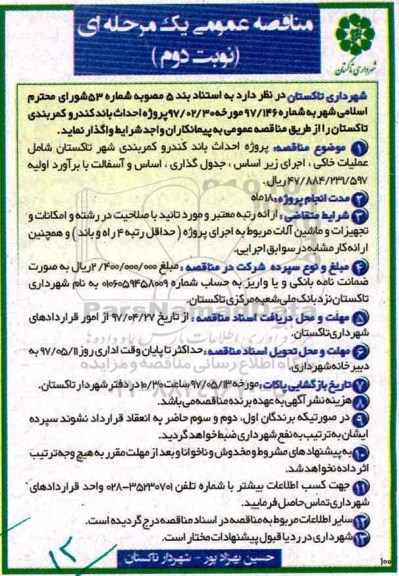 مناقصه عمومی یک مرحله ای
(نوبت دوم)
شهرداری تاکستان
شهرداری تاکستان در نظر دارد به استناد بند ۵ مصوبه شماره ۵۳ شورای محترم
اسلامی شهر به شماره ۹۷/۱۴۶ مورخه ۹۷/۰۲/۳۰ پروژه احداث باند کندرو کمربندی
تاکستان را از طریق مناقصه عمومی به پیمانکاران واجد شرایط واگذار نماید.
۱ موضوع مناقصه: پروژه احداث باند کندرو کمربندی شهر تاکستان شامل
عملیات خاکی ، اجرای زیر اساس ، جدول گذاری ، اساس و آسفالت با برآورد اولیه
۴۷/۸۸۴/۲۳۱/۵۹۷ ریال.
۲ مدت انجام پروژه: ۱۸ ماه
۳ شرایط متقاضی: ارائه رتبه معتبر و مورد تائید با صلاحیت در رشته و امکانات و
تجهیزات و ماشین آلات مربوط به اجرای پروژه ( حداقل رتبه ۴ راه و باند ) و همچنین
ارائه کار مشابه در سوابق اجرایی.
۴ مبلغ و نوع سپرده شرکت در مناقصه: مبلغ ۲/۴۰۰/۰۰۰/۰۰۰ ریال به صورت
ضمانت نامه بانکی و یا واریز به حساب شماره ۰۱۰۶۰۵۹۴۵۸۰۰۹ به نام شهرداری
تاکستان نزد بانک ملی شعبه مرکزی تاکستان.
۵ مهلت و محل دریافت اسناد مناقصه: از تاریخ ۹۷/۰۴/۲۷ از امور قراردادهای
شهرداری تاکستان.
۶ مهلت و محل تحویل اسناد مناقصه: حداکثر تا پایان وقت اداری روز ۹۷/۰۵/۱۱ به
دبیرخانه شهرداری.
۷ تاریخ بازگشایی پاکات: مورخه ۹۷/۰۵/۱۳ ساعت ۱۰/۳۰ در دفتر شهردار تاکستان.
۸ هزینه نشر آگهی به عهده برنده مناقصه می باشد.
۹ در صورتیکه برندگان اول، دوم و سوم حاضر به انعقاد قرارداد نشوند سپرده
ایشان به ترتیب به نفع شهرداری ضبط خواهد گردید.
۱۰ به پیشنهادهای مشروط و مخدوش و ناخوانا و بعد از مهلت مقرر به هیچ وجه ترتیب
اثر داده نخواهد شد.
۱۱ جهت کسب اطلاعات بیشتر با شماره تلفن ۳۵۲۳۰۷۰۱-۰۲۸ واحد قراردادهای
شهرداری تماس حاصل فرمایید.
۱۲ سایر اطلاعات مربوط به مناقصه در اسناد مناقصه درج گردیده است.
۱۳ شهرداری در رد یا قبول پیشنهادات مختار است.
حسین بهزاد پور - شهردار تاکستان
۱۲
۱۰۰